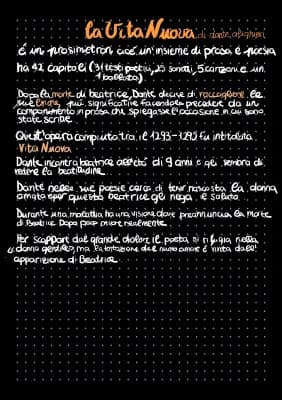 La Vita Nuova di dante alighieri
è un prosimetron cioè un'insieme di prosa e poesia
ha 42 capitoli (31 testi poetici, 25 sonetti, 5 canzoni e un
1 ballata).
Dopo la morte di beatrice, Dante decise di raccogliere le
sue liriche più significative facendole precedere da un
componimento in prosa che spiegasse l'occasione in cui sono
state scritte
Quest'opera compiuta tra il 1293-1295 fu intitolata
Vita Nuova
Dante incontra beatrice all'età di 9 anni e gli sembra di
vedere la beatitudine
Dante nelle sue poesie cerca di tener nascosta la donna
amata per questo beatrice gli nega il saluto.
Durante una malattia ha una visione dove preannuncia la morte
di Beatrice Dopo poco muore realmente
Per sopportare dal grande dolore il poeta si rifugia nella
"donna gentile", ma la tentazione del nuovo amore è vinta dall'
apparizione di Beatrice